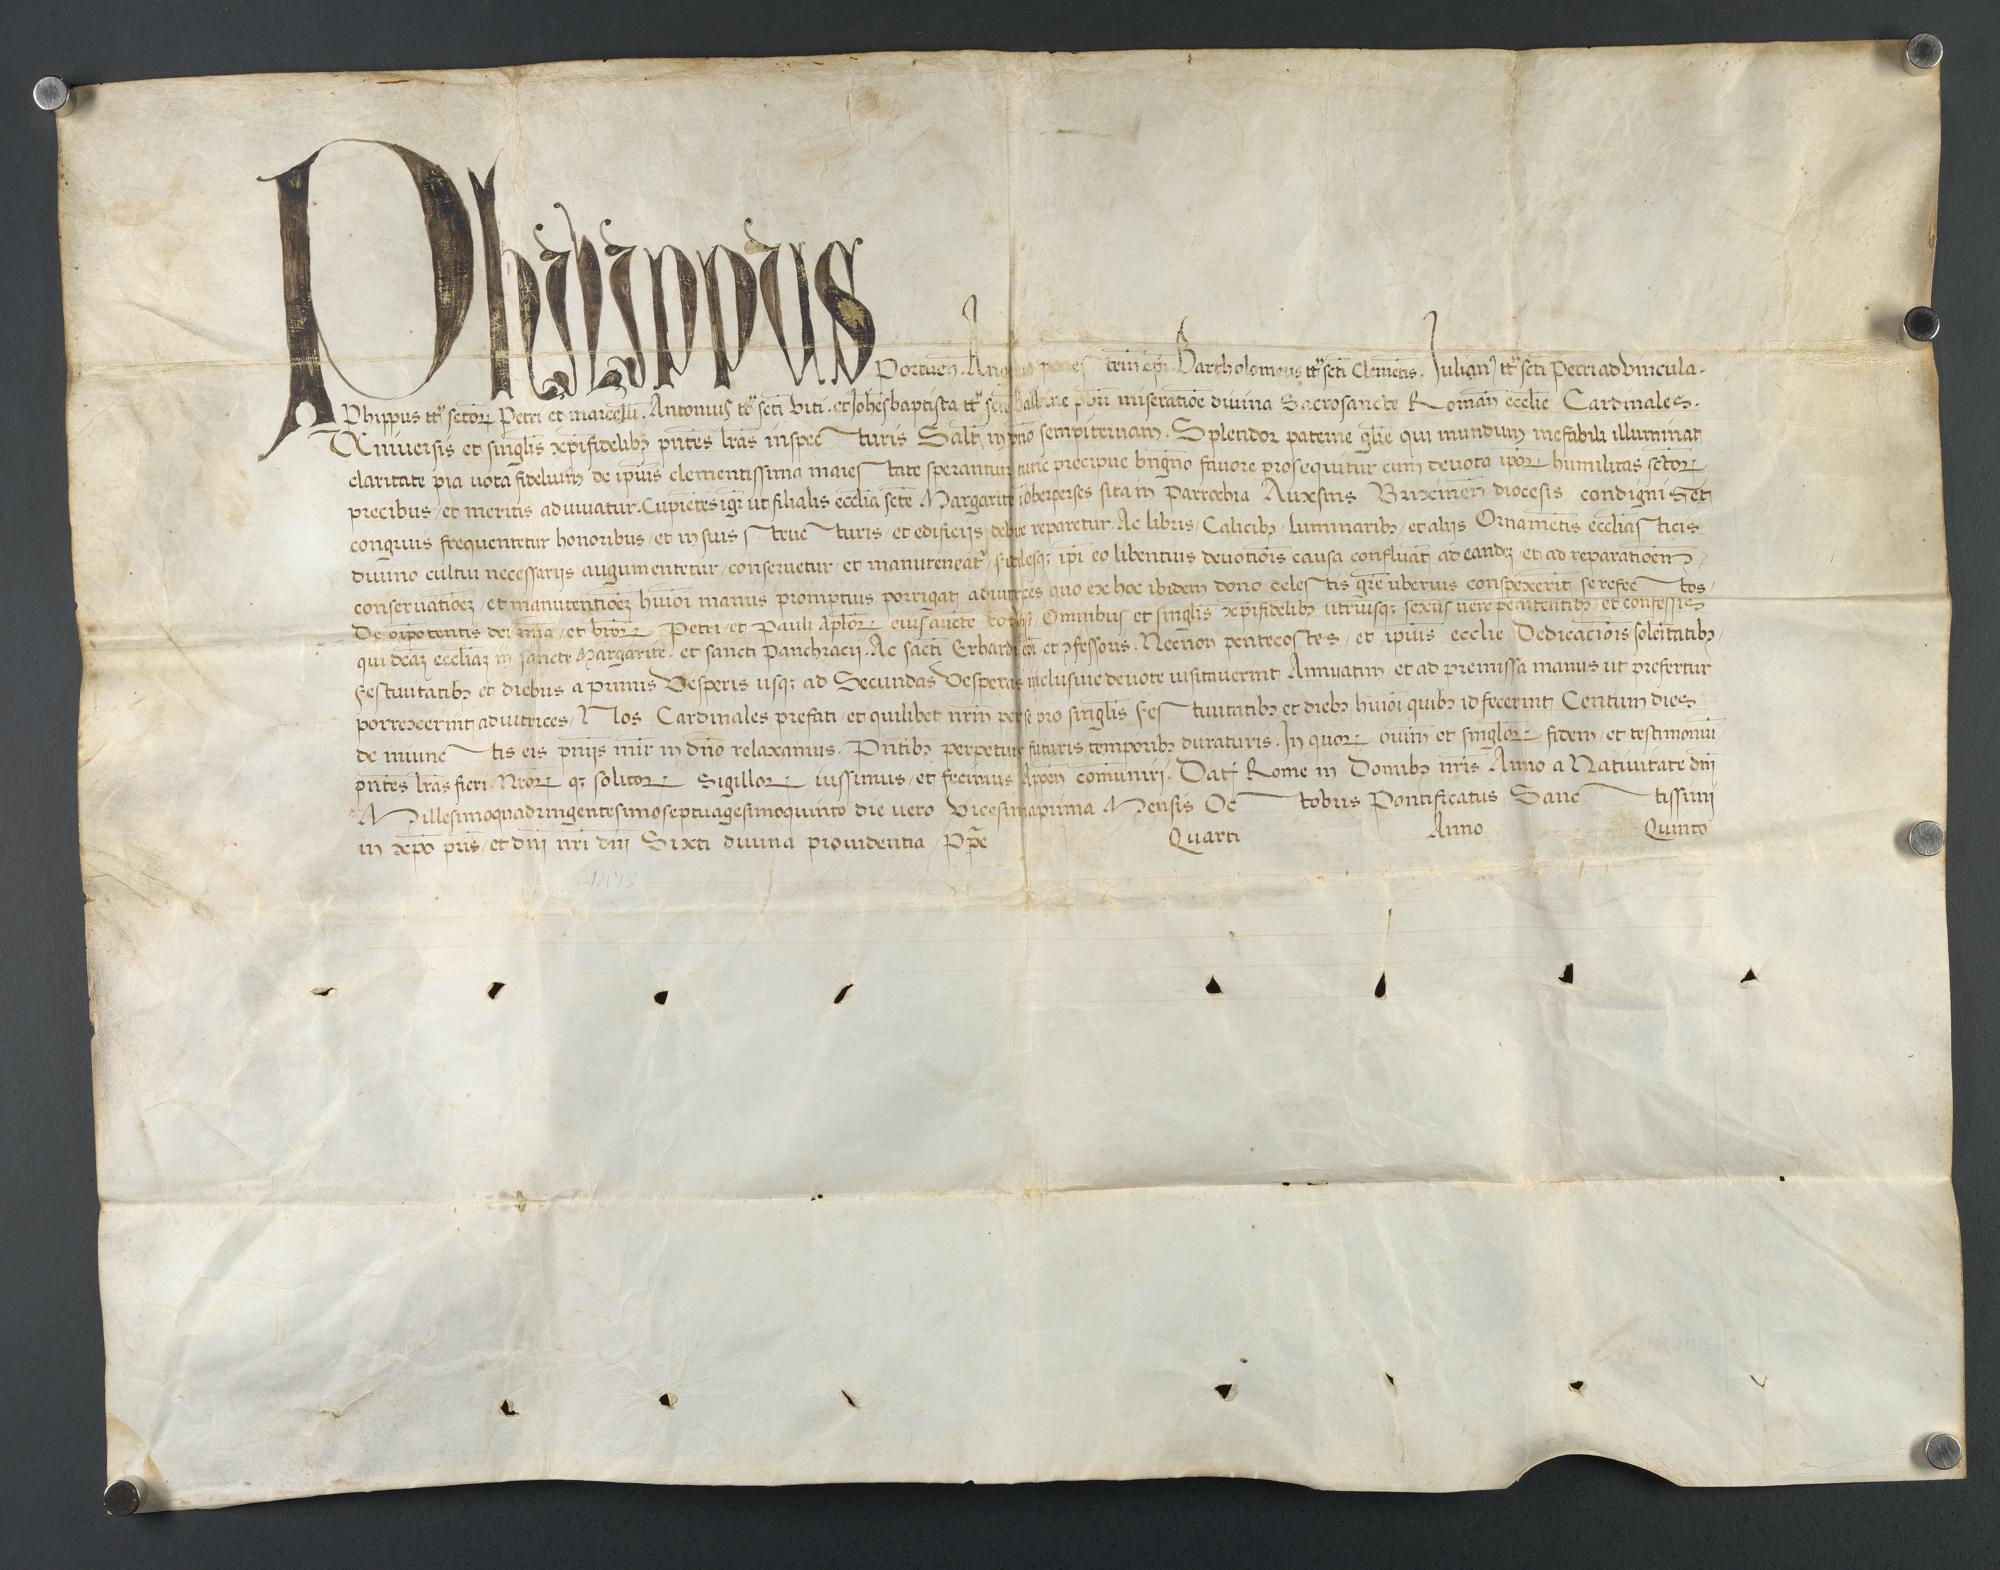 Philippus Portueñ. Ang penes trin epi. Bartholomeus tt̃ sc̃ti Clemẽtis. Julian9 tt̃ sc̃ti Petri ad vincula.
Phippus tt̃ sc̃torꝝ Petri et marcelli. Antonius tt̃ sc̃ti viti. et Joh̃es baptista tt̃ sc̃te Balbine pb̃ri miseratiõe divina Sacrosancte Romañ ecclie Cardinales.
Universis et singlis xp̃ifidelibꝫ pñtes lr̃as inspecturis Salt̃ in dño sempiternam. Splendor paterne glie qui mundum inefabili illuminat
claritate pia vota fidelium de ip̃ius clementissima maiestate sperantium tunc precipue bñgno favore prosequitur cum devota ip̃orꝝ humilitas sc̃torꝝ
precibus et meritis adiuvatur. Cupiẽtes igr̃ ut filialis ecclia sc̃te Margarite in oberperfes sita in Parrochia Auxsins Brixineñ diocesis condignis et
congruis frequentetur honoribus et in suis structuris et edificijs debite reparetur. Ac libris, Calicibꝫ, luminaribꝫ, et alijs Ornamẽtis eccliasticis
divino cultui necessarijs augumentetur, conservetur, et manuteneat̃, fidelesqꝫ ip̃i eo libentius devotiõis causa confluãt ad eandẽ, et ad reparatioẽm,
conservatioẽꝫ, et manutentioẽꝫ huiõi manus promptius porrigat adiutrices quo ex hoc ibidem dono celestis gr̃e uberius conspexerit se refectos,
De oĩpotentis dei mĩa, et btõrꝝ Petri et Pauli Aplõrꝝ eius aucte confisi, Omnibus et singlis xp̃ifidelibꝫ utriusqꝫ sexus vere penitentibꝫ et confessis
qui dcãꝫ eccliaꝫ in sancte Margarite. et sancti Panchracij. Ac sãcti Erhardi epi et ꝯfessoris. Necnon pentecostes, et ip̃ius ecclie Dedicaciõis solẽitatibꝫ,
festivitatibꝫ et diebus a primis Vesperis usqꝫ ad Secundas Vesperas inclusive devote visitaverint Annuatim et ad premissa manus ut prefertur
porrexerint adiutrices, Nos Cardinales prefati, et quilibet nr̃m per se pro singlis festivitatibꝫ et diebꝫ huiõi quibꝫ id fecerint Centum dies
de iniunctis eis pñijs mir̃ in dño relaxamus. Pñtibꝫ perpetuis futuris temporibꝫ duraturis. In quorꝝ oĩum et singlorꝝ fidem, et testimoniũ,
pñtes lr̃as fieri. Nr̃orꝝ qꝫ solitorꝝ Sigillorꝝ iussimus, et fecimus Appeñ comũniri. Dat̃ Rome in Domibꝫ nr̃is Anno a Nativitate dñi
Millesimoquadringentesimoseptuagesimoquinto die vero Vicesimaprima Mensis Octobris Pontificatus Sanctissimi
in xp̃o pr̃is, et dñi nr̃i dñi Sixti divina providentia, Pp̃e Quarti Anno Quinto